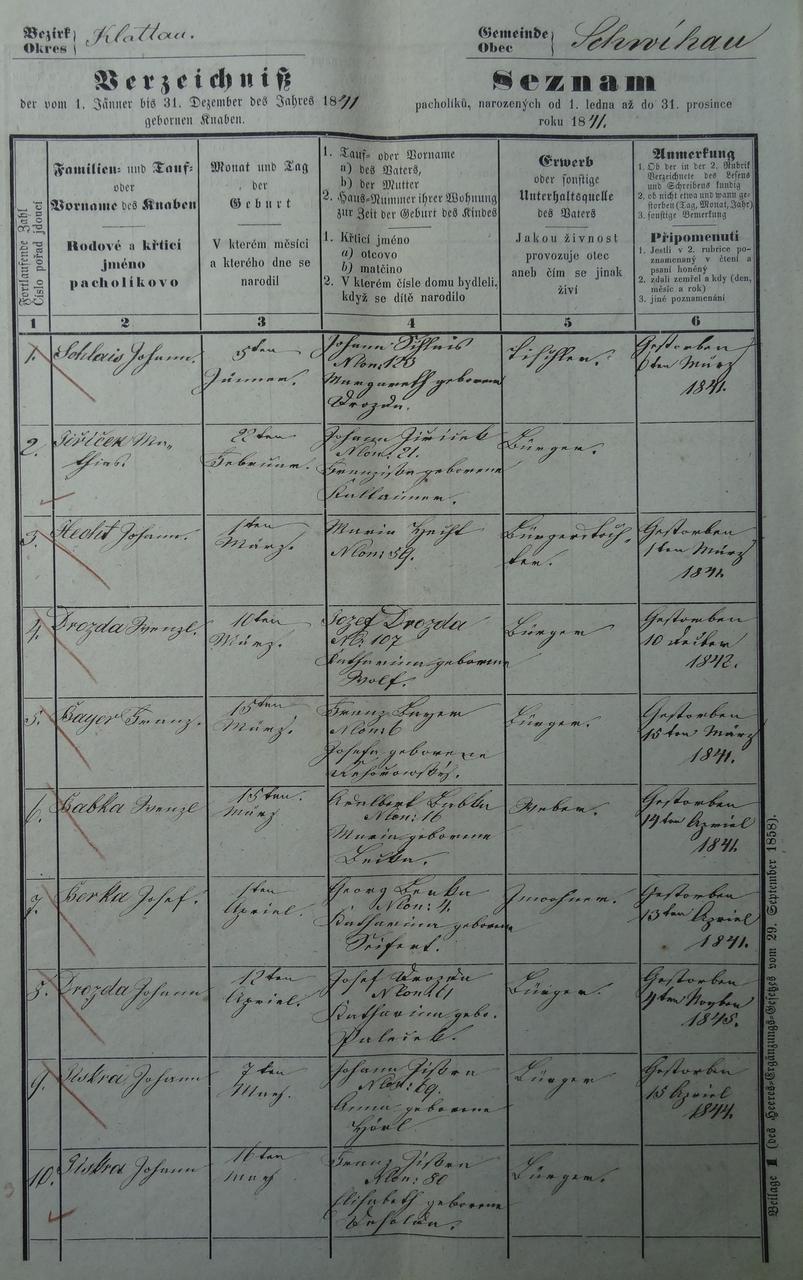 Bezirk
Okres
Klattau.
Gemeinde
Obec
Schwihau
Verzeichniß
der vom 1. Jänner bis 31. Dezember des Jahres 1841
gebornen Knaben.
Seznam
pacholíků, narozených od 1. ledna až do 31. prosince
roku 1841.
Fortlaufende Zahl
Číslo pořád jdoucí
Familien- und Tauf-
oder
Vorname des Knaben
Rodové a křticí
jméno
pacholíkovo
Monat und Tag
der
Geburt
V kterém měsíci
a kterého dne se
narodil
1. Tauf- oder Vorname
a) des Vaters,
b) der Mutter
2. Haus-Nummer ihrer Wohnung
zur Zeit der Geburt des Kindes
1. Křticí jméno
a) otcovo
b) matčino
2. V kterém čísle domu bydleli,
když se dítě narodilo
Erwerb
oder sonstige
Unterhaltsquelle
des Vaters
Jakou živnost
provozuje otec
aneb čím se jinak
živí
Anmerkung
1. Ob der in der 2. Rubrik
Verzeichnete des Lesens
und Schreibens kundig
2. ob nicht etwa und wann ge-
storben (Tag, Monat, Jahr)
3. sonstige Bemerkung
Připomenutí
1. Jestli v 2. rubrice po-
znamenaný v čtení a
psaní honěný
2. zdali zemřel a kdy (den,
měsíc a rok)
3. jiné poznamenání
1 2 3 4 5 6
1. Schlais Johann.
5ten
Jänner.
Johann Schlais
NCon: 120
Margareth geborene
Drozda.
Tischler.
Gestorben
6ten März
1841.
2. Jiříček Ma-
thias.
22ten
Februar.
Johann Jiriček
NCon: 21.
Franziska geborene
Bürger.
3. Hecht Johann.
1ten
März.
Maria Hecht
NCon: 59.
Bürgerstoch-
ter.
Gestorben
1ten März
1841.
4. Drozda Wenzl.
10ten
März.
Josef Drozda
NC 107
Katharina geborene
Wolf.
Bürger
Gestorben
10
1842.
5. Bayer Franz.
15ten
März.
Franz Bayer
NCon: 6
Josefa geborene
Bürger.
Gestorben
15ten März
1841.
6. Babka Wenzl
15ten.
März
Adalbert Babka
NCon: 16
Maria geborene
Weber.
Gestorben
14ten Apriel
1841.
7. Berka Josef.
1ten
Apriel.
Georg Berka
NCon: 4.
Katharina geborene
Seifert.
Inwohner.
Gestorben
13ten Apriel
1841.
8. Drozda Johann
12ten
Apriel.
Josef Drozda
Katharina gebo.
Bürger.
Gestorben
4ten Novbr
1845.
9. Piskra Johann
7ten
May.
Johann Piskra
NCon: 69.
Anna geborene
Hörl
Bürger
Gestorben
15 Apriel
1844.
10. Piskra Johann
16ten
May
Franz Piskra
NCon: 80
Elisabeth geborene
Bürger.
Beilage 1 (des Heeres-Ergänzungs-Gesetzes vom 29. September 1858).